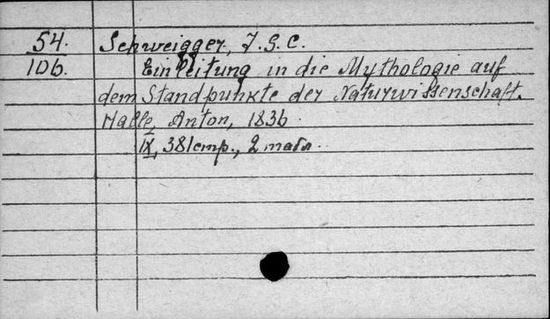 54. Schweigger, J.S.C.
106. Einleitung in die Mythologie auf
dem Standpunkte der Naturwissenschaft.
Halle, Anton, 1836.
IX, 381 стр., 2 табл.